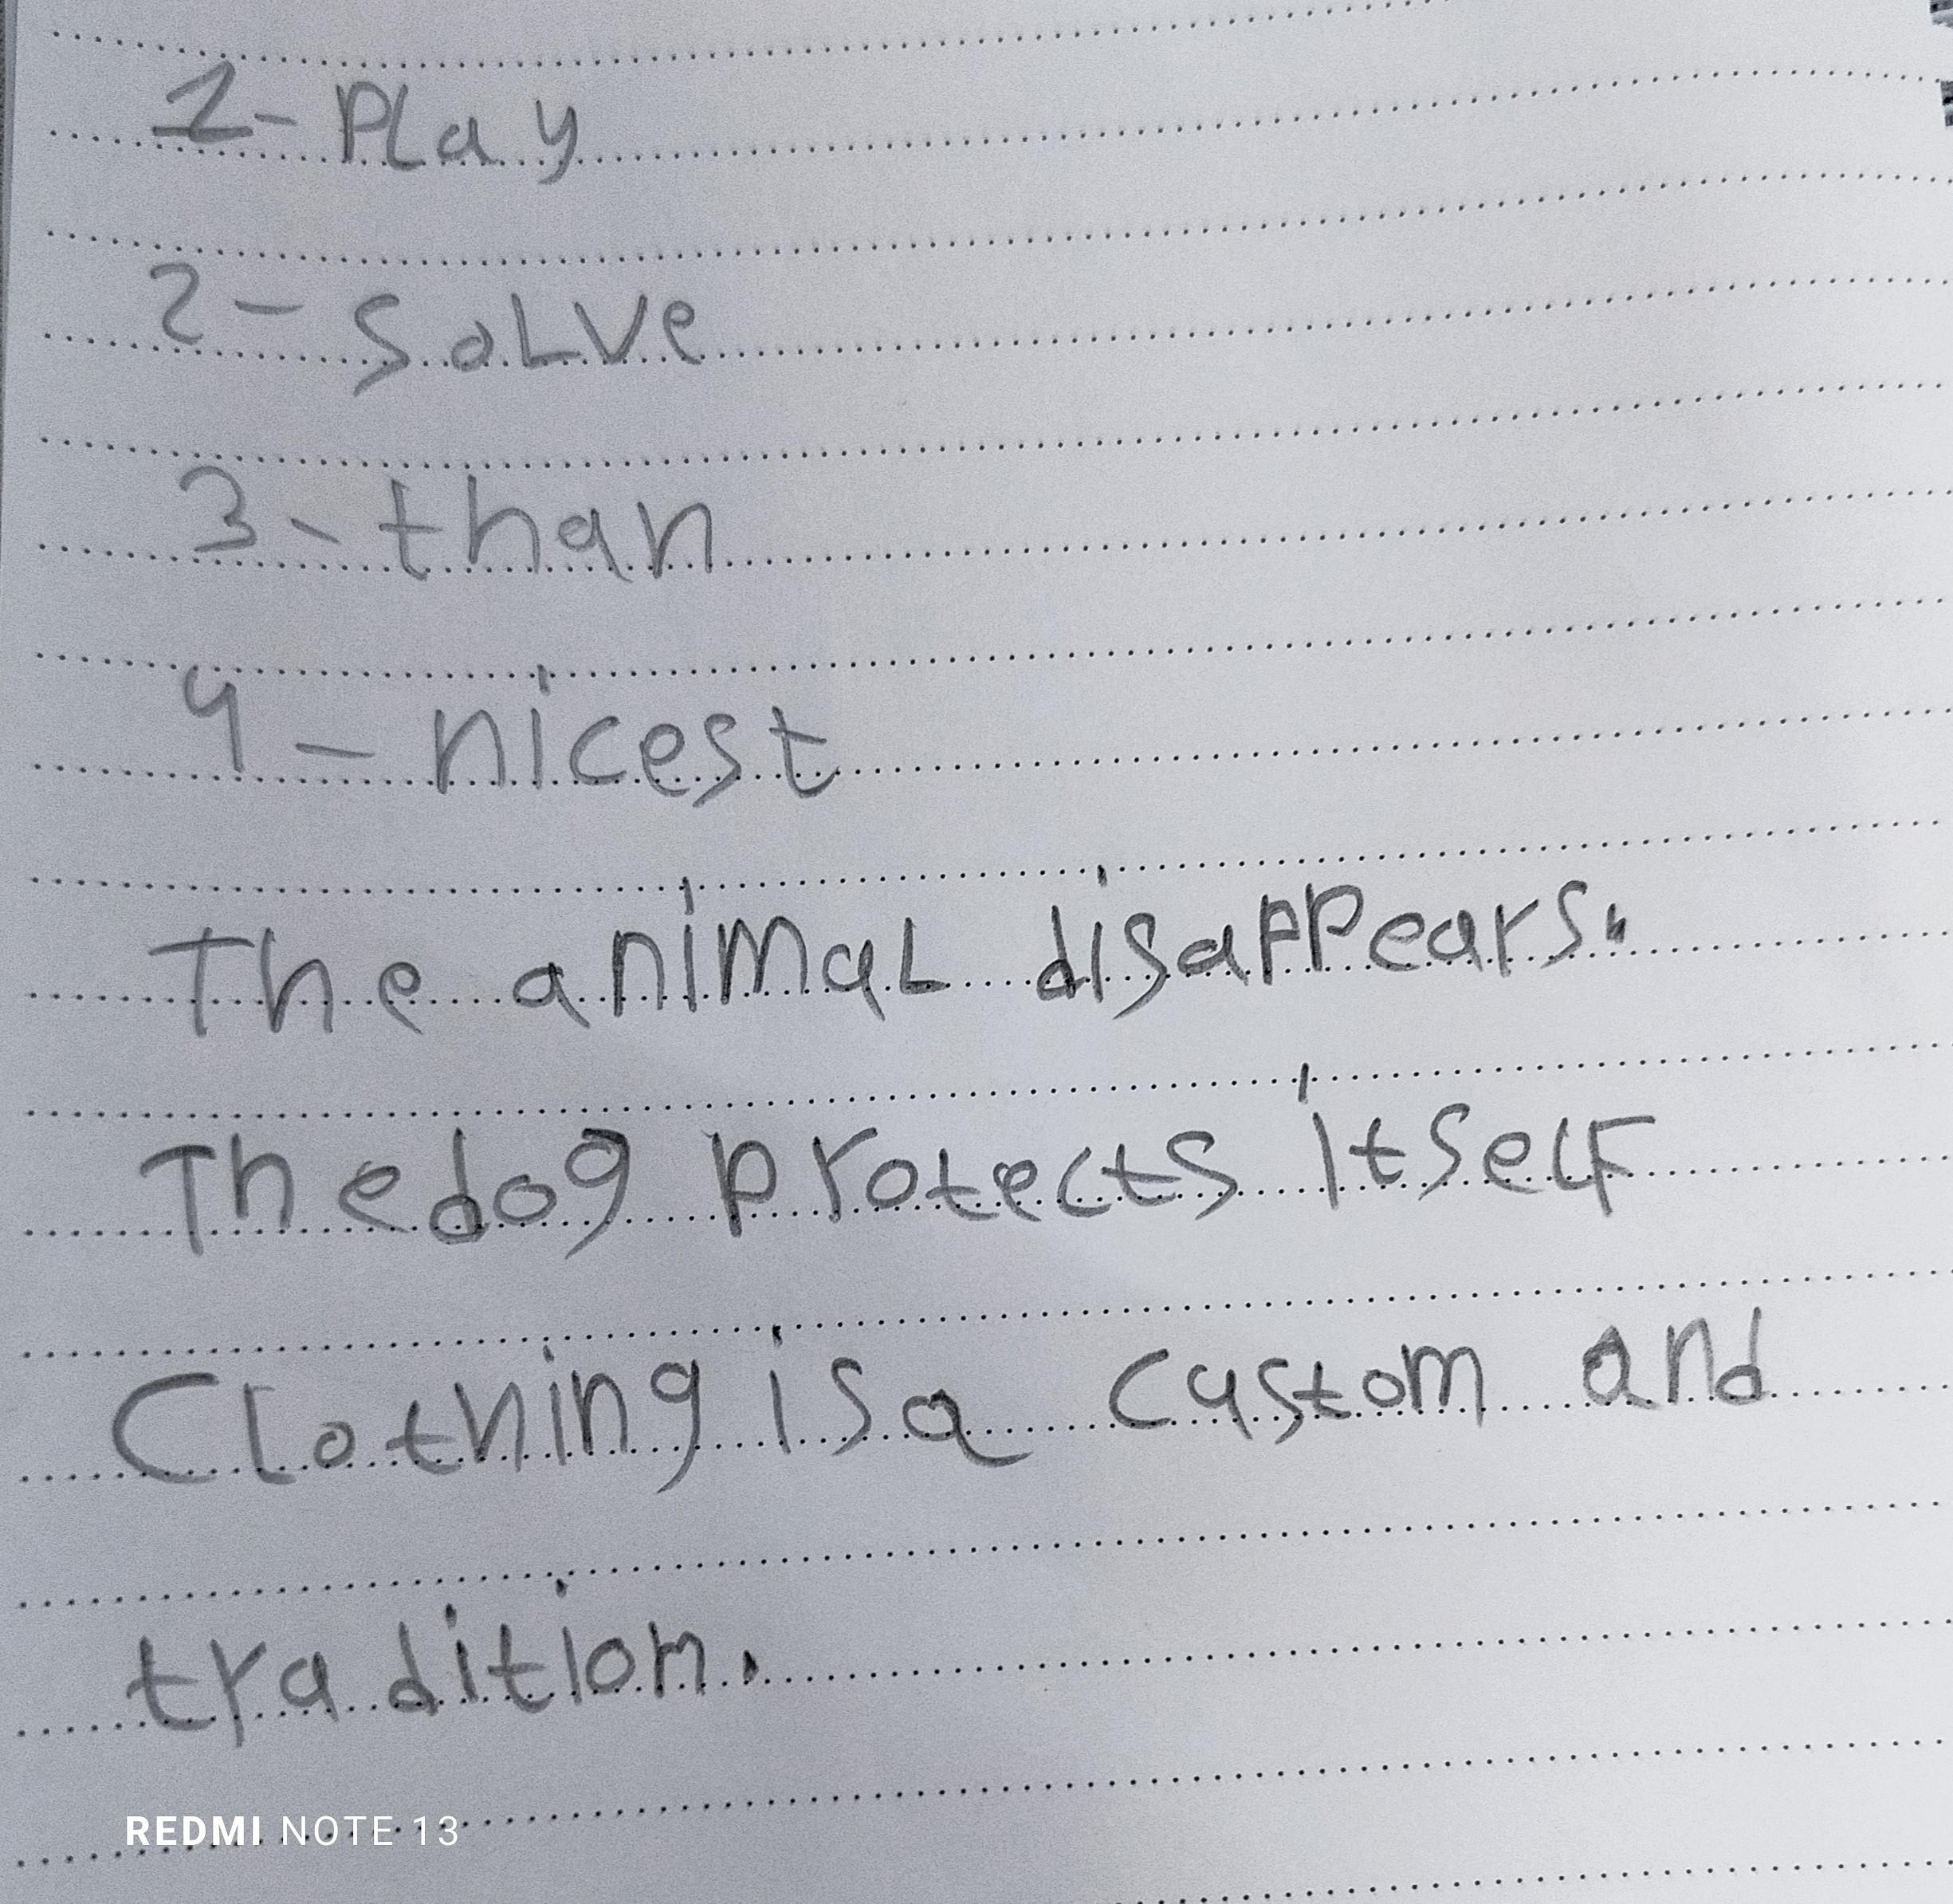 1- Play
2- Solve
3- than
4- nicest
The animal disappears.
The dog protects itself
Clothing is a custom and
tradition.
REDMI NOTE 13